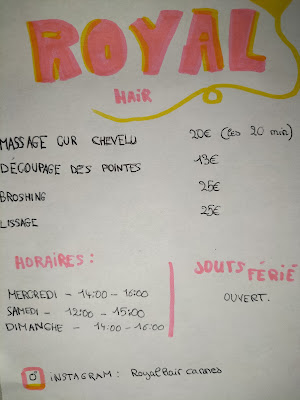 ROYAL
HAIR
MASSAGE CUR CHEVELU 20€ (les 20 min)
DÉCOUPAGE DES POINTES 13€
BROSHING 25€
LISSAGE 25€
HORAIRES :
MERCREDI - 14:00 - 16:00
SAMEDI - 12:00 - 15:00
DIMANCHE - 14:00 - 16:00
JOUTS FÉRIÉ
OUVERT.
INSTAGRAM : RoyalHair cannes